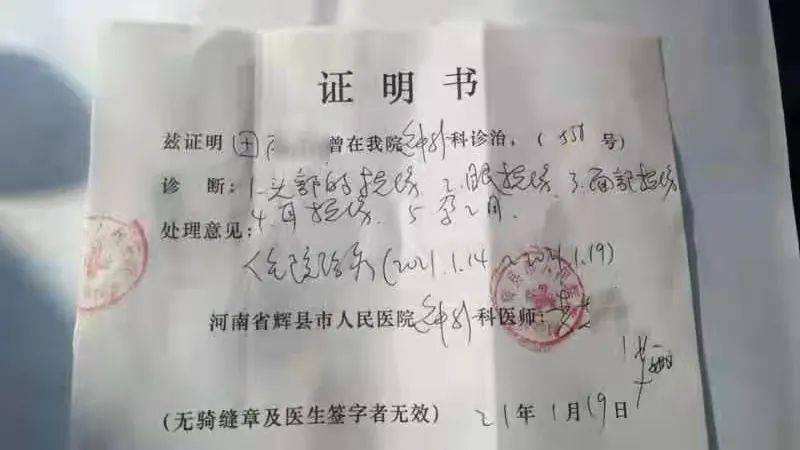 证明书
兹证明 田 曾在我院神外科诊治,( 551 号)
诊 断: 1.头部的损伤 2.眼损伤 3.面部损伤
4.耳损伤 5.孕2月
处理意见:
(2021.1.14 2021.1.19)
河南省辉县市人民医院神外科医师:
(无骑缝章及医生签字者无效) 21年1月19日